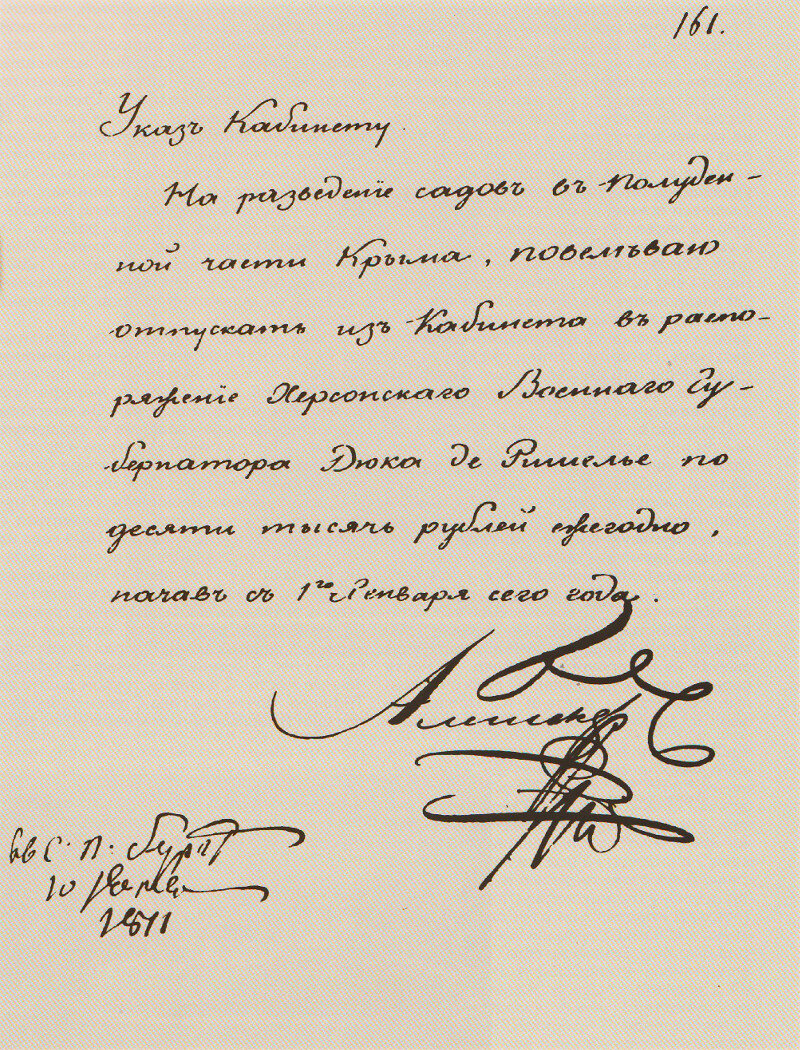 161.
Указъ Кабинету
На разведенїе садовъ въ полуден-
ной части Крыма, повелѣваю
отпускать изъ Кабинета въ распо-
ряженїе Херсонскаго Военнаго Гу-
бернатора Дюка де Ришелье по
десяти тысячь рублей ежегодно,
начавъ съ 1го Генваря сего года.
въ С. П. бургѣ
10 Марта
1811